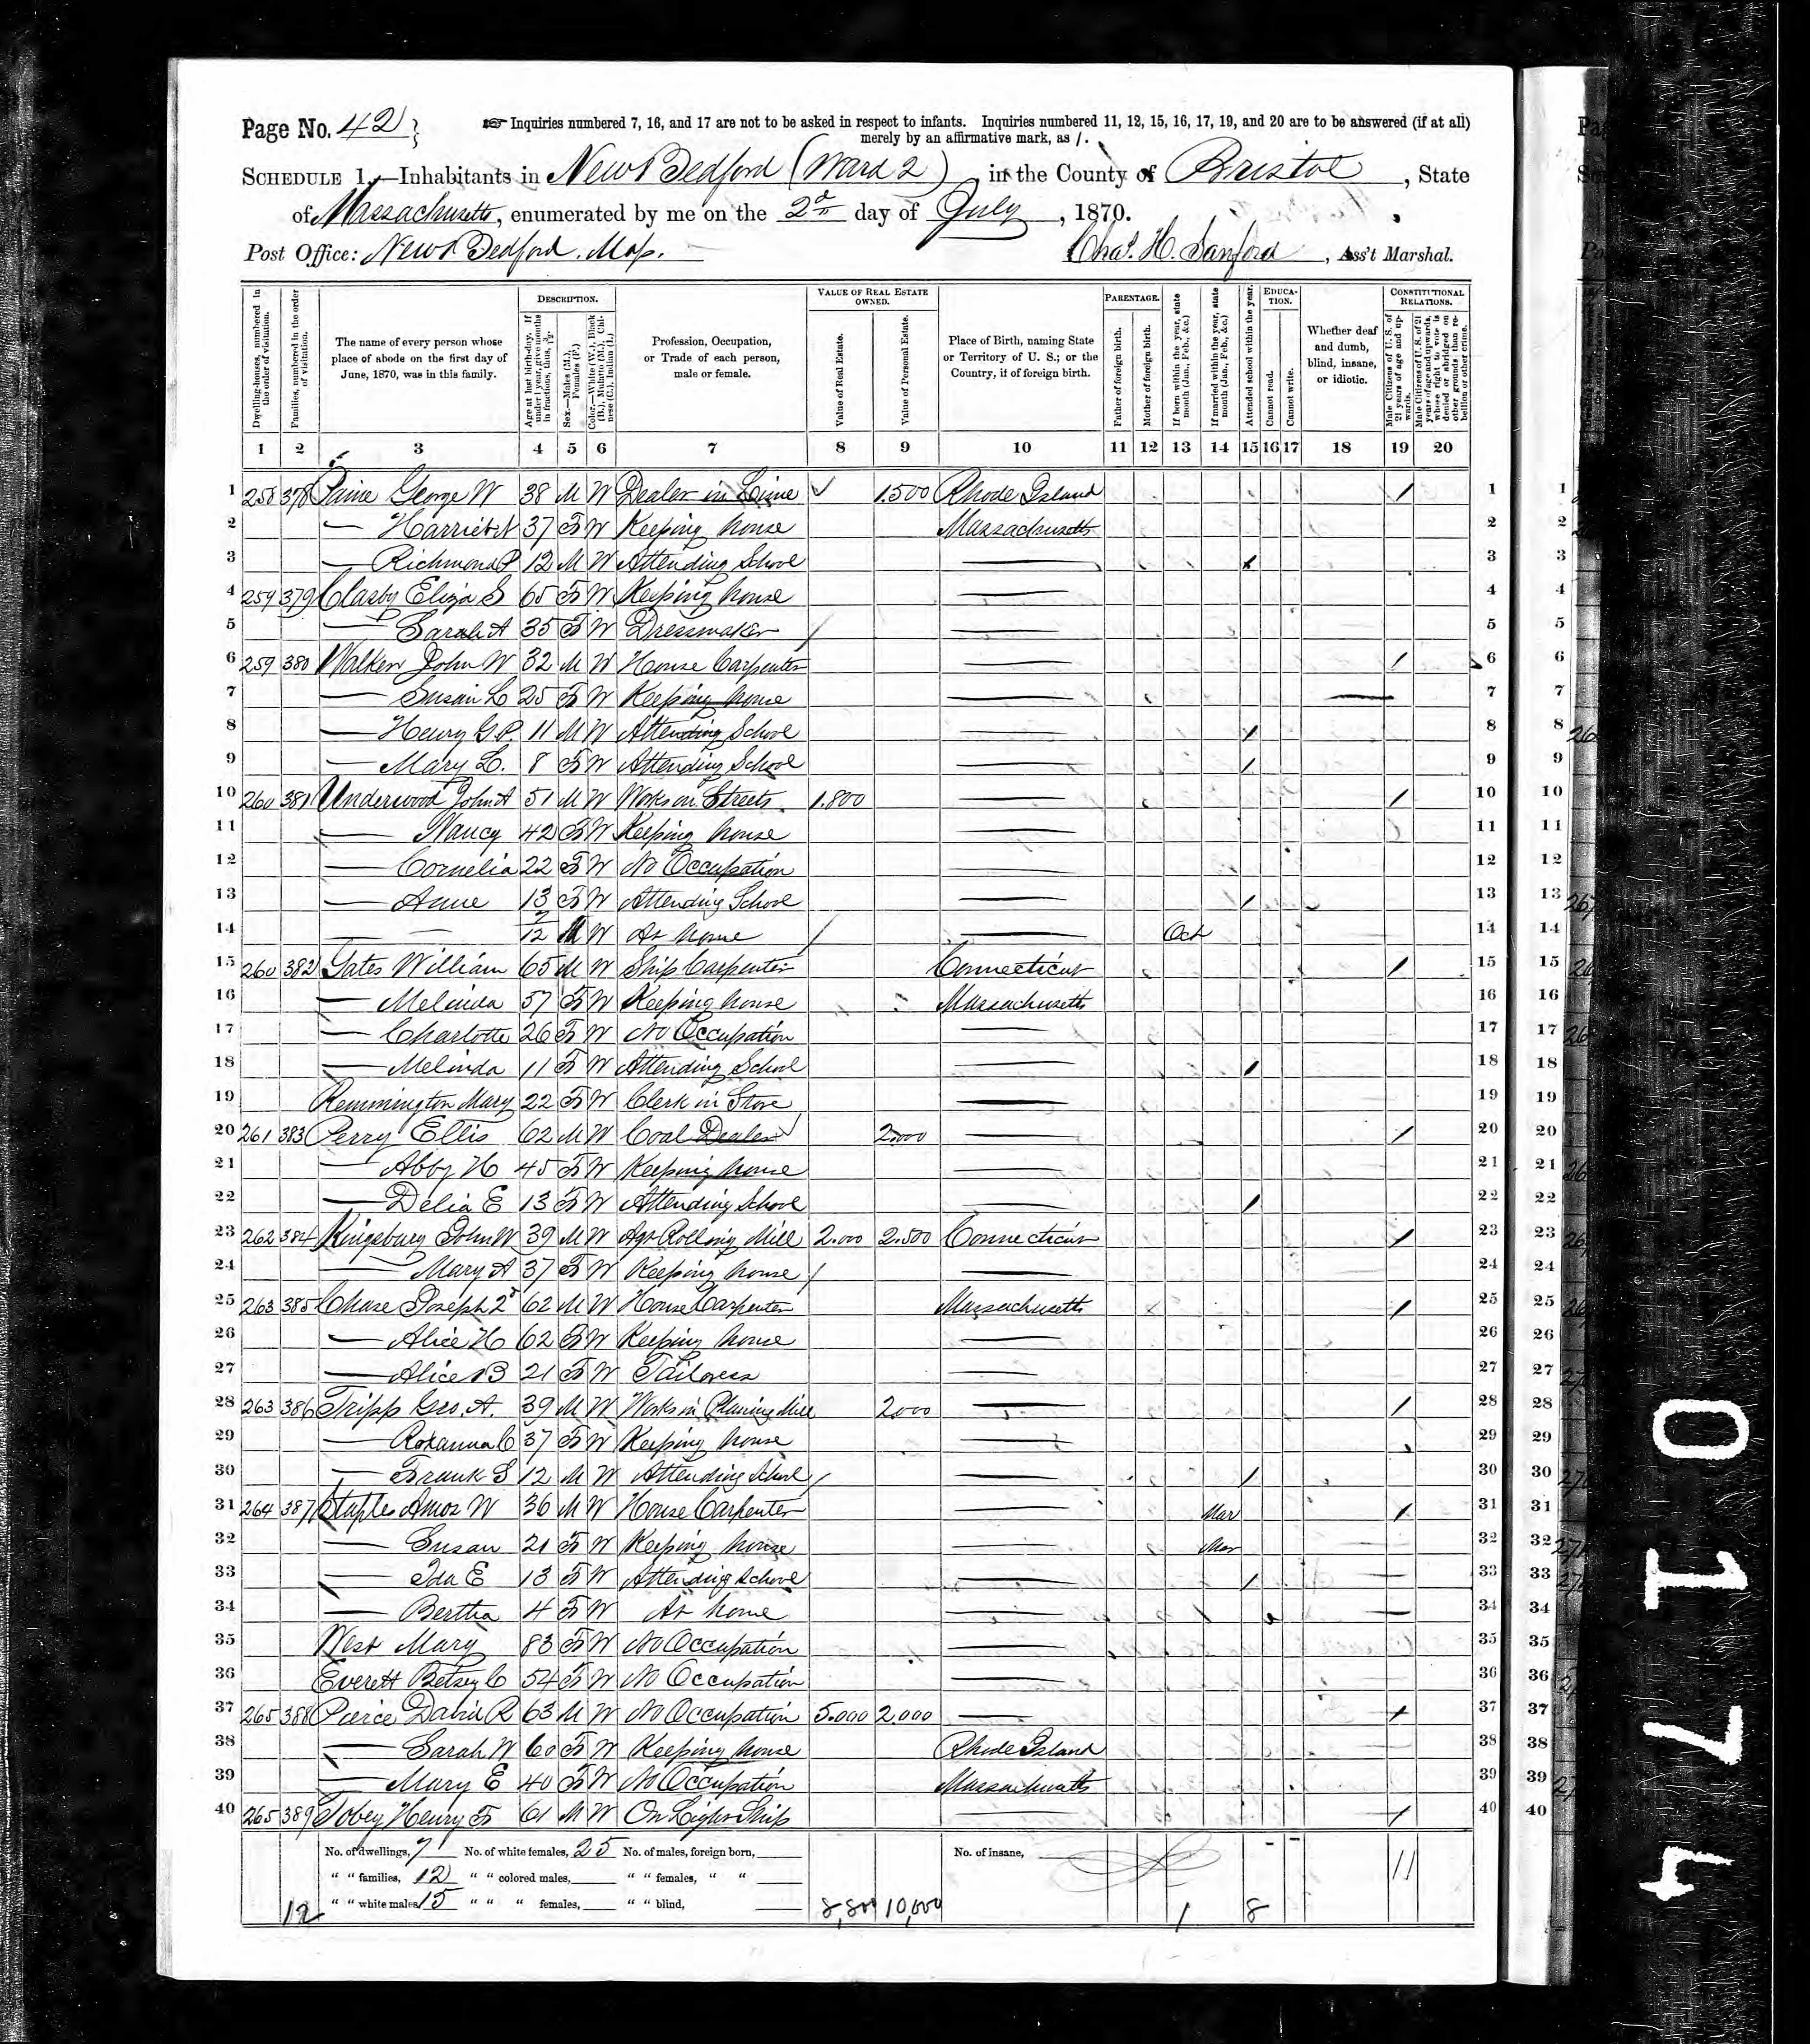 Page No. 42
☞ Inquiries numbered 7, 16, and 17 are not to be asked in respect to infants. Inquiries numbered 11, 12, 15, 16, 17, 19, and 20 are to be answered (if at all)
merely by an affirmative mark, as /.
SCHEDULE 1.—Inhabitants in New Bedford (Ward 2), in the County of Bristol, State
of Massachusetts, enumerated by me on the 2d day of July, 1870.
Post Office: New Bedford. Mass.
Chas. H. Sanford, Ass't Marshal.
Dwelling-houses, numbered in the order of visitation.
Families, numbered in the order of visitation.
The name of every person whose place of abode on the first day of June, 1870, was in this family.
DESCRIPTION.
Age at last birth-day. If under 1 year, give months in fractions, thus, 3/12
Sex.—Males (M.), Females (F.)
Color.—White (W.), Black (B.), Mulatto (M.), Chinese (C.), Indian (I.)
Profession, Occupation, or Trade of each person, male or female.
VALUE OF REAL ESTATE OWNED.
Value of Real Estate.
Value of Personal Estate.
Place of Birth, naming State or Territory of U. S.; or the Country, if of foreign birth.
PARENTAGE.
Father of foreign birth.
Mother of foreign birth.
If born within the year, state month (Jan., Feb., &c.)
If married within the year, state month (Jan., Feb., &c.)
Attended school within the year.
EDUCATION.
Cannot read.
Cannot write.
Whether deaf and dumb, blind, insane, or idiotic.
CONSTITUTIONAL RELATIONS.
Male Citizens of U. S. of 21 years of age and upwards.
Male Citizens of U. S. of 21 years of age and upwards, whose right to vote is denied or abridged on other grounds than rebellion or other crime.
1 2 3 4 5 6 7 8 9 10 11 12 13 14 15 16 17 18 19 20
1 258 378 Paine George W 38 M W Dealer in Lime 1.500 Rhode Island / 1
2 — Harriet N 37 F W Keeping house Massachusetts 2
3 — Richmond P 12 M W Attending School — / 3
4 259 379 Clasby Eliza S 65 F W Keeping house — 4
5 — Sarah A 35 F W Dressmaker — 5
6 259 380 Walker John W 32 M W House Carpenter — / 6
7 — Susan L 25 F W Keeping house — 7
8 — Henry G P. 11 M W Attending School — / 8
9 — Mary L. 8 F W Attending School — / 9
10 260 381 Underwood John A 51 M W Works on Streets 1.800 — / 10
11 — Nancy 42 F W Keeping house — 11
12 — Cornelia 22 F W No Occupation — 12
13 — Anne 13 F W Attending School — / 13
14 — — 7/12 M W At home — Oct 14
15 260 382 Gates William 65 M W Ship Carpenter Connecticut / 15
16 — Melinda 57 F W Keeping house Massachusetts 16
17 — Charlotte 26 F W No Occupation — 17
18 — Melinda 11 F W Attending School — / 18
19 Remmington Mary 22 F W Clerk in Store — 19
20 261 383 Perry Ellis 62 M W Coal Dealer 2.000 — / 20
21 — Abby H 45 F W Keeping house — 21
22 — Delia E 13 F W Attending School — / 22
23 262 384 Kingsbury John W 39 M W Agt Rolling Mill 2.000 2.500 Connecticut / 23
24 — Mary A 37 F W Keeping house — 24
25 263 385 Chase Joseph 2d 62 M W House Carpenter Massachusetts / 25
26 — Alice H 62 F W Keeping house — 26
27 — Alice B 21 F W Tailoress — 27
28 263 386 Tripp Geo. A. 39 M W Works in Planing Mill 2.000 — / 28
29 — Roxanna C 37 F W Keeping house — 29
30 — Frank S 12 M W Attending School — / 30
31 264 387 Staples Amos W 36 M W House Carpenter — Mar / 31
32 — Susan 21 F W Keeping house — Mar 32
33 — Ida E 13 F W Attending School — / 33
34 — Bertha 4 F W At home — 34
35 West Mary 83 F W No Occupation — 35
36 Everett Betsey C 54 F W No Occupation — 36
37 265 388 Pierce David R 63 M W No Occupation 5.000 2.000 — / 37
38 — Sarah W 60 F W Keeping house Rhode Island 38
39 — Mary E 40 F W No Occupation Massachusetts 39
40 265 389 Tobey Henry F 61 M W On Light Ship / 40
No. of dwellings, 7 No. of white females, 25 No. of males, foreign born, No. of insane,
" " families, 12 " " colored males, " " females, " " 11
12 " " white males, 15 " " " females, " " blind, 8,800 10,000 1 8
0174